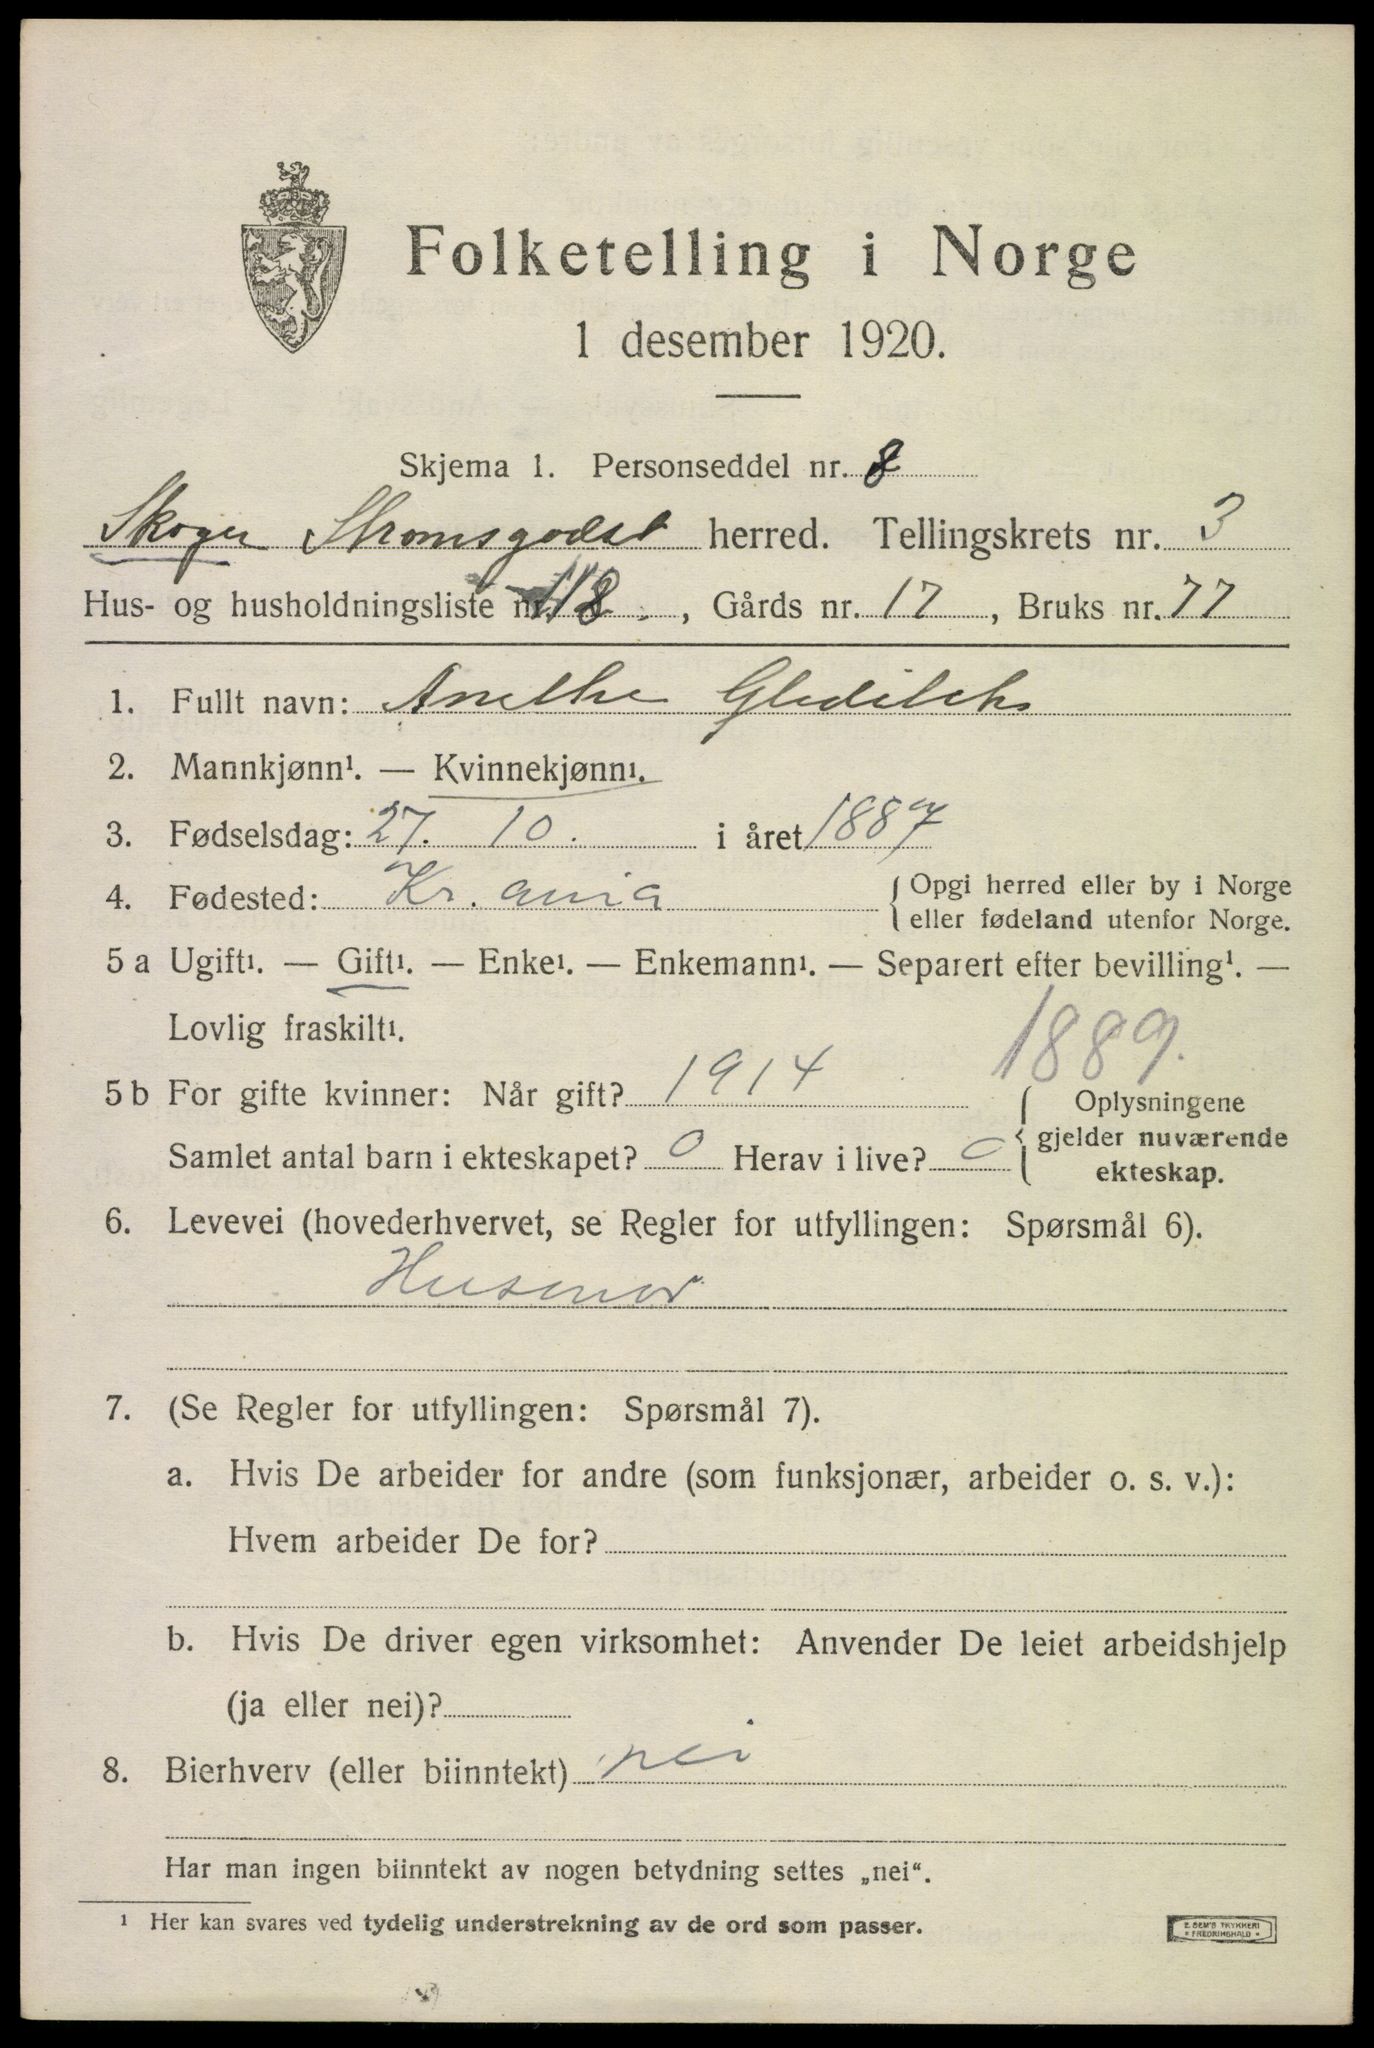 Folketelling i Norge
1 desember 1920.
Skjema 1. Personseddel nr. 8
Skoger Strømsgodset herred. Tellingskrets nr. 3
Hus- og husholdningsliste nr. 118, Gårds nr. 17, Bruks nr. 77
1. Fullt navn: Anethe Gleditsch
2. Mannkjønn¹. — Kvinnekjønn¹.
3. Fødselsdag: 27. 10. i året 1887
4. Fødested: Kr.ania { Opgi herred eller by i Norge
eller fødeland utenfor Norge.
5 a Ugift¹. — Gift¹. — Enke¹. — Enkemann¹. — Separert efter bevilling¹. —
Lovlig fraskilt¹.
1889.
5 b For gifte kvinner: Når gift? 1914
Samlet antal barn i ekteskapet? 0 Herav i live? 0
{ Oplysningene
gjelder nuværende
ekteskap.
6. Levevei (hovederhvervet, se Regler for utfyllingen: Spørsmål 6).
Husmor
7. (Se Regler for utfyllingen: Spørsmål 7).
a. Hvis De arbeider for andre (som funksjonær, arbeider o. s. v.):
Hvem arbeider De for?
b. Hvis De driver egen virksomhet: Anvender De leiet arbeidshjelp
(ja eller nei)?
8. Bierhverv (eller biinntekt) nei
Har man ingen biinntekt av nogen betydning settes „nei“.
¹ Her kan svares ved tydelig understrekning av de ord som passer.
E. SEM'S TRYKKERI
* FREDRIKSHALD *